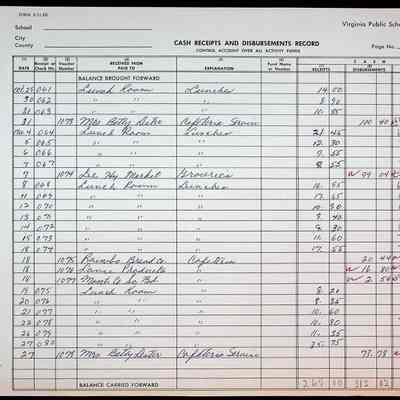 FORM S.31.00
Virginia Public Sch
School
City
County
CASH RECEIPTS AND DISBURSEMENTS RECORD
CONTROL ACCOUNT OVER ALL ACTIVITY FUNDS
Page No.
CASH
DATE Receipt or Check No. Voucher Number RECEIVED FROM PAID TO EXPLANATION Fund Name or Number RECEIPTS DISBURSEMENTS
BALANCE BROUGHT FORWARD
Oct. 29 061 Lunch Room Lunches 14 00
30 062 " " " 8 90
31 063 " " " 10 85
31 1073 Mrs Betty Lester Cafeteria 100 40
No. 4 064 Lunch Room Lunches 21 45
5 065 " " " 12 30
6 066 " " " 7 55
7 067 " " " 8 55
7 1074 Lee Hy Market Groceries 99 04
8 068 Lunch Room Lunches 10 55
11 069 " " " 17 65
12 070 " " " 10 90
13 071 " " "
14 072 " " " 8 30
15 073 " " " 11 60
18 074 " " " 17 55
18 1075 Rainbo Bread Co. Cafeteria 20 44
18 1076 Products " 16 80
18 1077 Bd. " 2 56
19 075 Lunch Room " 8 20
20 076 " " " 8 35
21 077 " " " 10 60
22 078 " " " 11 80
25 079 " " "
27 080 " " " 25 75
27 1078 Mrs Betty Lester Cafeteria 78.78
BALANCE CARRIED FORWARD 312 02